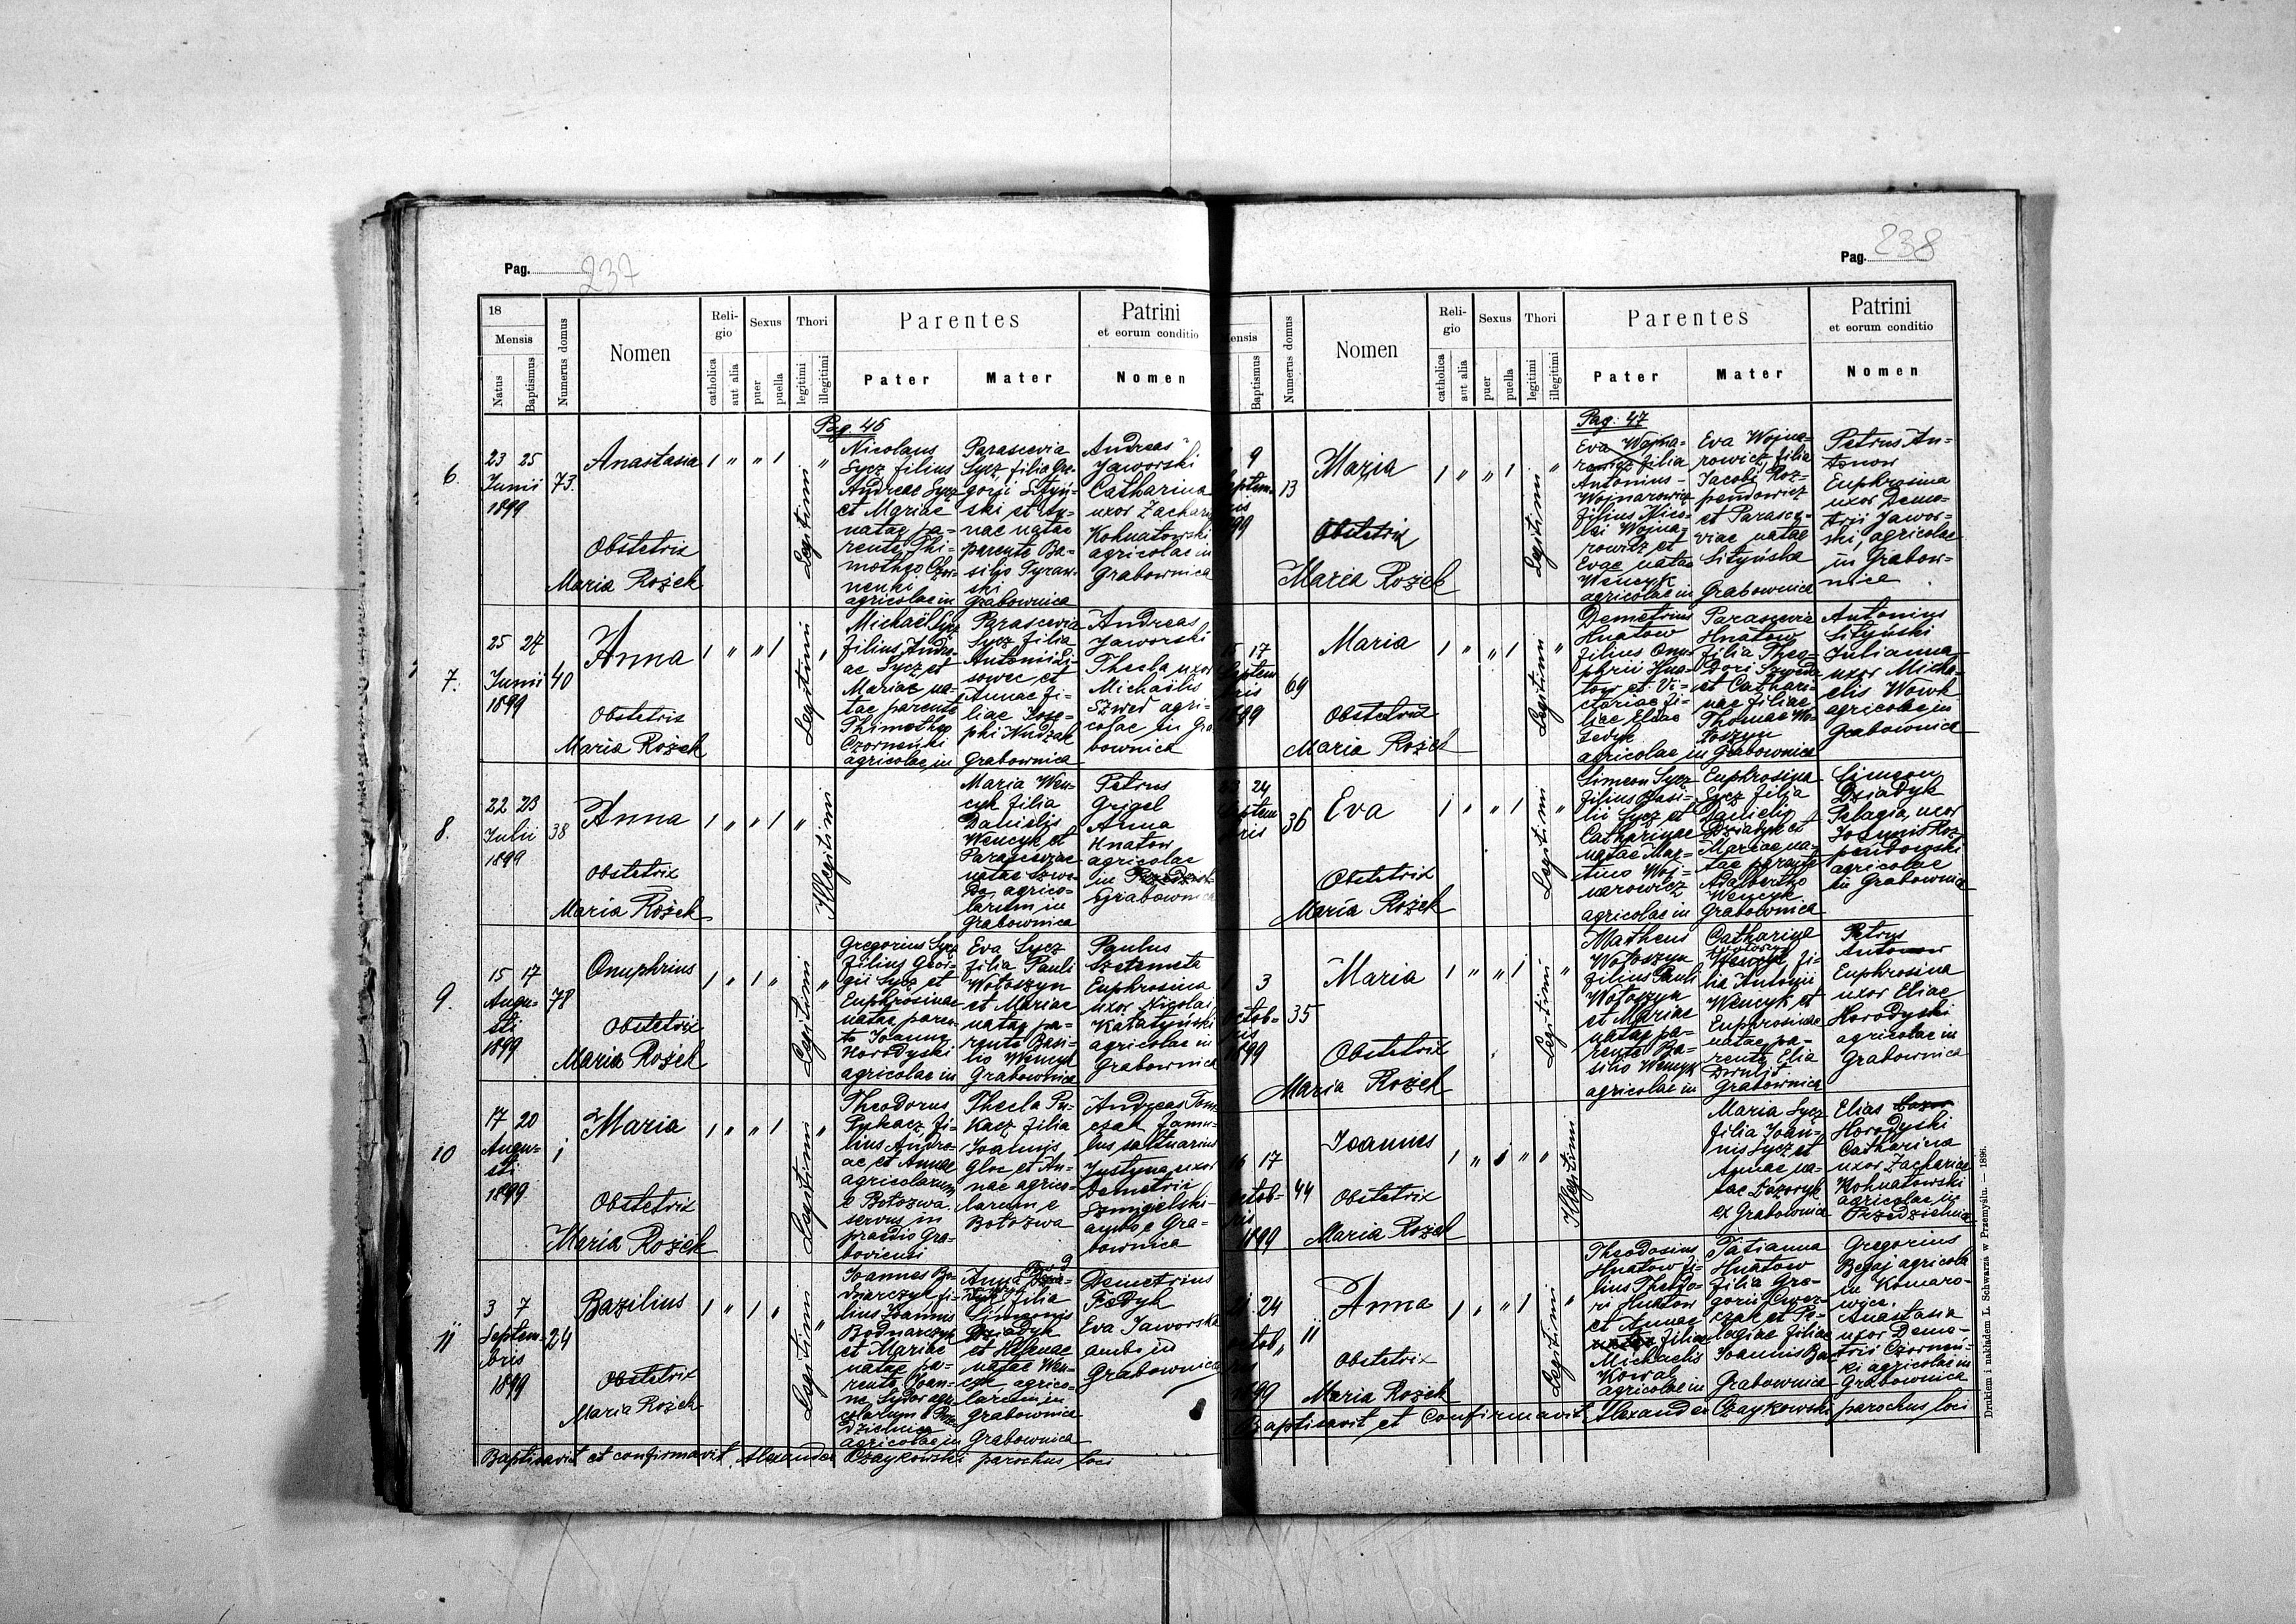 Pag. 237
18
Mensis
Natus
Baptismus
Numerus domus
Nomen
Religio
catholica
aut alia
Sexus
puer
puella
Thori
legitimi
illegitimi
Parentes
Pater
Mater
Patrini
et eorum conditio
Nomen
Pag. 46
6.
23 25
Junii
1899
73.
Anastasia
Obstetrix
Maria Rożek
Legitimi
Nicolaus
Sycz filius
Andreae Sycz
et Mariae
natae pa-
rente Thi-
motheo
agricolae in
Parascevia
Sycz filia Gre-
gorii Lityń-
ski et An-
nae natae
parente Ba-
silio
ski
Grabownica
Andreas
Jaworski
Catharina
uxor
Kohnatowski
agricolae in
Grabownica
7.
25 27
Junii
1899
40
Anna
Obstetrix
Maria Rożek
Legitimi
Michaël Sycz
filius Andre-
ae Sycz et
Mariae na-
tae parente
Thimotheo
Czorneńki
agricolae in
Parascevia
Sycz filia
Antonii Li-
sowec et
Annae fi-
liae Jose-
phi
Grabownica
Andreas
Jaworski
Thecla uxor
Michaëlis
Szwed agri-
colae in Gra
bownica
8.
22 23
Julii
1899
38
Anna
Obstetrix
Maria Rożek
Illegitimi
Maria Wen-
cyk filia
Danielis
Wencyk et
Parasceviae
natae Szwe-
da agrico-
larum in
Grabownica
Petrus
Grigel
Anna
Hnatow
agricolae
in
Grabownica
9.
15 17
Augu-
sti
1899
78
Onuphrius
Obstetrix
Maria Rożek
Legitimi
Gregorius Sycz
filius Geor-
gii Sycz et
Euphrosinae
natae paren-
te Joanne
Horodyski
agricolae in
Eva Sycz
filia Pauli
Wołoszyn
et Mariae
natae pa-
rente Basi-
lio Wencyk
Grabownica
Paulus
Szeremeta
Euphrosina
uxor Nicolai
Kałatyński
agricolae in
Grabownica
10
17 20
Augu-
sti
1899
1
Maria
Obstetrix
Maria Rożek
Legitimi
Theodorus
Pukacz fi-
lius Andre-
ae et Annae
agricolarum
e Bołozwa
servus in
praedio Gra-
boviensi
Thecla Pu-
kacz filia
Joannis
Gloc et An-
nae agrico-
larum e
Bołozwa
Andreas Tom-
czak famu-
lus saltuarius
Justyna uxor
Demetrii
Szmigelski
ambo e Gra-
bownica
11
3 7
Septem-
bris
1899
24
Bazilius
Obstetrix
Maria Rożek
Legitimi
Joannes Bo-
dnarczyk fi-
lius Joannis
Bodnarczyk
et Mariae
natae pa-
rente Joan-
ne Sydor agri-
colarum e Prze-
dzielnica
agricolae in
Anna
filia
Simeonis
Dziadyk
et Helenae
natae Wen-
cyk agrico-
larum in
Grabownica
Grabownica
Demetrius
Fedyk
Eva Jaworska
ambo in
Grabownica
Baptisavit et confirmavit Alexander Czaykowski parochus loci
Pag. 238
ensis
Baptismus
Numerus domus
Nomen
Religio
catholica
aut alia
Sexus
puer
puella
Thori
legitimi
illegitimi
Parentes
Pater
Mater
Patrini
et eorum conditio
Nomen
Pag. 47
9
13
Maria
Obstetrix
Maria Rożek
Legitimi
Eva Wojna-
rowicz filia
Antonius
Wojnarowicz
filius Nico-
lai Wojna-
rowicz et
Evae natae
Wencyk
agricolae in
Eva Wojna-
rowicz filia
Jacobi Roz-
pendowicz
et Parasce-
viae natae
Lityńska
Grabownica
Petrus An-
tonow
Euphrosina
uxor Deme-
trii Jawor-
ski, agricolae
in Grabow-
nica
17
69
Maria
Obstetrix
Maria Rożek
Legitimi
Demetrius
Hnatow
filius Onu-
phrii Hna-
tow et Vi-
ctoriae fi-
liae Eliae
Fedyk
agricolae in
Parascevia
Hnatow
filia Theo-
dori Szweda
et Cathari-
nae filiae
Thomae Wo-
łoszyn
Grabownica
Antonius
Lityński
Julianna
uxor Micha-
elis Wowk
agricolae in
Grabownica
24
36
Eva
Obstetrix
Maria Rożek
Legitimi
Simeon Sycz
filius Basi-
lii Sycz et
Catharinae
natae Mar-
tino Woj-
narowicz
agricolae in
Euphrosina
Sycz filia
Danielis
Dziadyk et
Mariae na-
tae parente
Adalberto
Wencyk
Grabownica
Simeon
Dziadyk
Pelagia uxor
Joannis Roz-
pendowski
agricolae
in Grabownica
3
octob-
ris
1899
35
Maria
Obstetrix
Maria Rożek
Legitimi
Matheus
Wołoszyn
filius Pauli
Wołoszyn
et Mariae
natae pa-
rente Ba-
silio Wencyk
agricolae in
Catharina
Wołoszyn
fi-
lia Antonii
Wencyk et
Euphrosinae
natae pa-
rente Elia
Grabownica
Petrus
Antonow
Euphrosina
uxor Eliae
Horodyski
agricolae in
Grabownica
17
44
Joannes
Obstetrix
Maria Rożek
Illegitimi
Maria Sycz
filia Joan-
nis Sycz et
Annae na-
tae Łazoryk
ex Grabownica
Elias
Horodyski
Catharina
uxor Zachariae
Kohnatowski
agricolae in
Przedzielnica
24
11
Anna
Obstetrix
Maria Rożek
Legitimi
Theodosius
Hnatow fi-
lius Theodo-
ri Hnatow
et Annae
filiae
Michaelis
Kowal
agricolae in
Tatianna
Hnatow
filia Gre-
gorii
et Pe-
lagiae filiae
Joannis
Grabownica
Gregorius
Begaj agricola
in Komaro-
wice.
Anastasia
uxor Deme-
trii Czorneń-
ki agricolae in
Grabownica
Baptisavit et Confirmavit Alexander Czaykowski parochus loci
Drukiem i nakładem L. Schwarza w Przemyślu. — 1896.